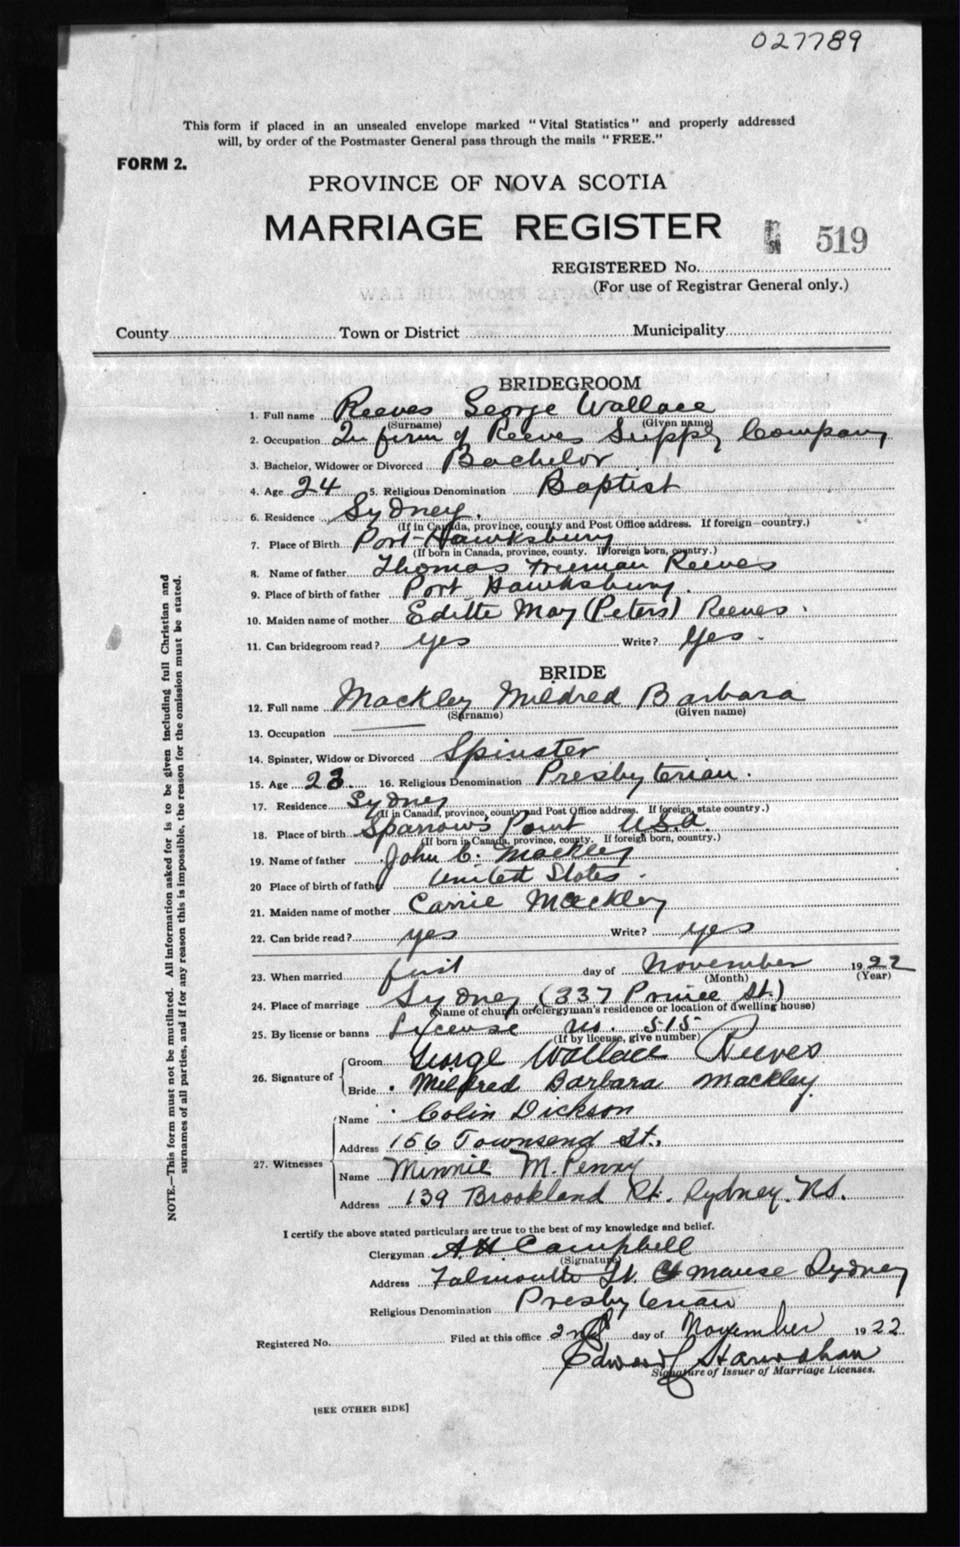 027789
This form if placed in an unsealed envelope marked "Vital Statistics" and properly addressed
will, by order of the Postmaster General pass through the mails "FREE."
FORM 2.
PROVINCE OF NOVA SCOTIA
MARRIAGE REGISTER 519
REGISTERED No.
(For use of Registrar General only.)
County Town or District Municipality
BRIDEGROOM
1. Full name Reeves George Wallace
(Surname) (Given name)
2. Occupation In firm of Reeves Supply Company
3. Bachelor, Widower or Divorced Bachelor
4. Age 24 5. Religious Denomination Baptist
6. Residence Sydney.
(If in Canada, province, county and Post Office address. If foreign—country.)
7. Place of Birth Port Hawksbury
(If born in Canada, province, county. If foreign born, country.)
8. Name of father Thomas Freeman Reeves
9. Place of birth of father Port Hawksbury.
10. Maiden name of mother Editte May (Peters) Reeves.
11. Can bridegroom read? yes Write? Yes.
BRIDE
12. Full name Mackley Mildred Barbara
(Surname) (Given name)
13. Occupation
14. Spinster, Widow or Divorced Spinster
15. Age 23 16. Religious Denomination Presbyterian.
17. Residence Sydney
(If in Canada, province, county and Post Office address. If foreign, state country.)
18. Place of birth Sparrows Point U.S.A.
(If born in Canada, province, county. If foreign born, country.)
19. Name of father John C. Mackley
20 Place of birth of father United States.
21. Maiden name of mother Carrie Mackley
22. Can bride read? yes Write? yes
23. When married first day of November 1922
(Month) (Year)
24. Place of marriage Sydney (337 Prince St.)
(Name of church or clergyman's residence or location of dwelling house)
25. By license or banns License No. 515
(If by license, give number)
26. Signature of Groom George Wallace Reeves
Bride Mildred Barbara Mackley.
27. Witnesses Name Colin Dickson
Address 156 Townsend St.,
Name Minnie M. Penny
Address 139 Brookland St. Sydney. N.S.
I certify the above stated particulars are true to the best of my knowledge and belief.
Clergyman A.H Campbell
(Signature)
Address Falmouth St. manse Sydney
Religious Denomination Presbyterian
Registered No. Filed at this office 2nd day of November 1922
Edward
Signature of Issuer of Marriage Licenses.
[SEE OTHER SIDE]
NOTE.—This form must not be mutilated. All information asked for is to be given including full Christian and
surnames of all parties, and if for any reason this is impossible, the reason for the omission must be stated.